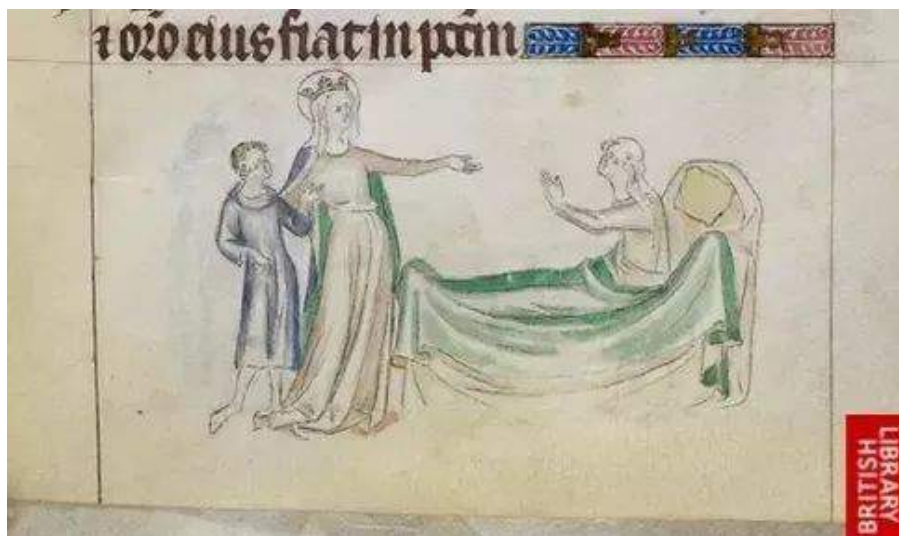 ⁊ oro eius fiat in pctm
BRITISH
LIBRARY